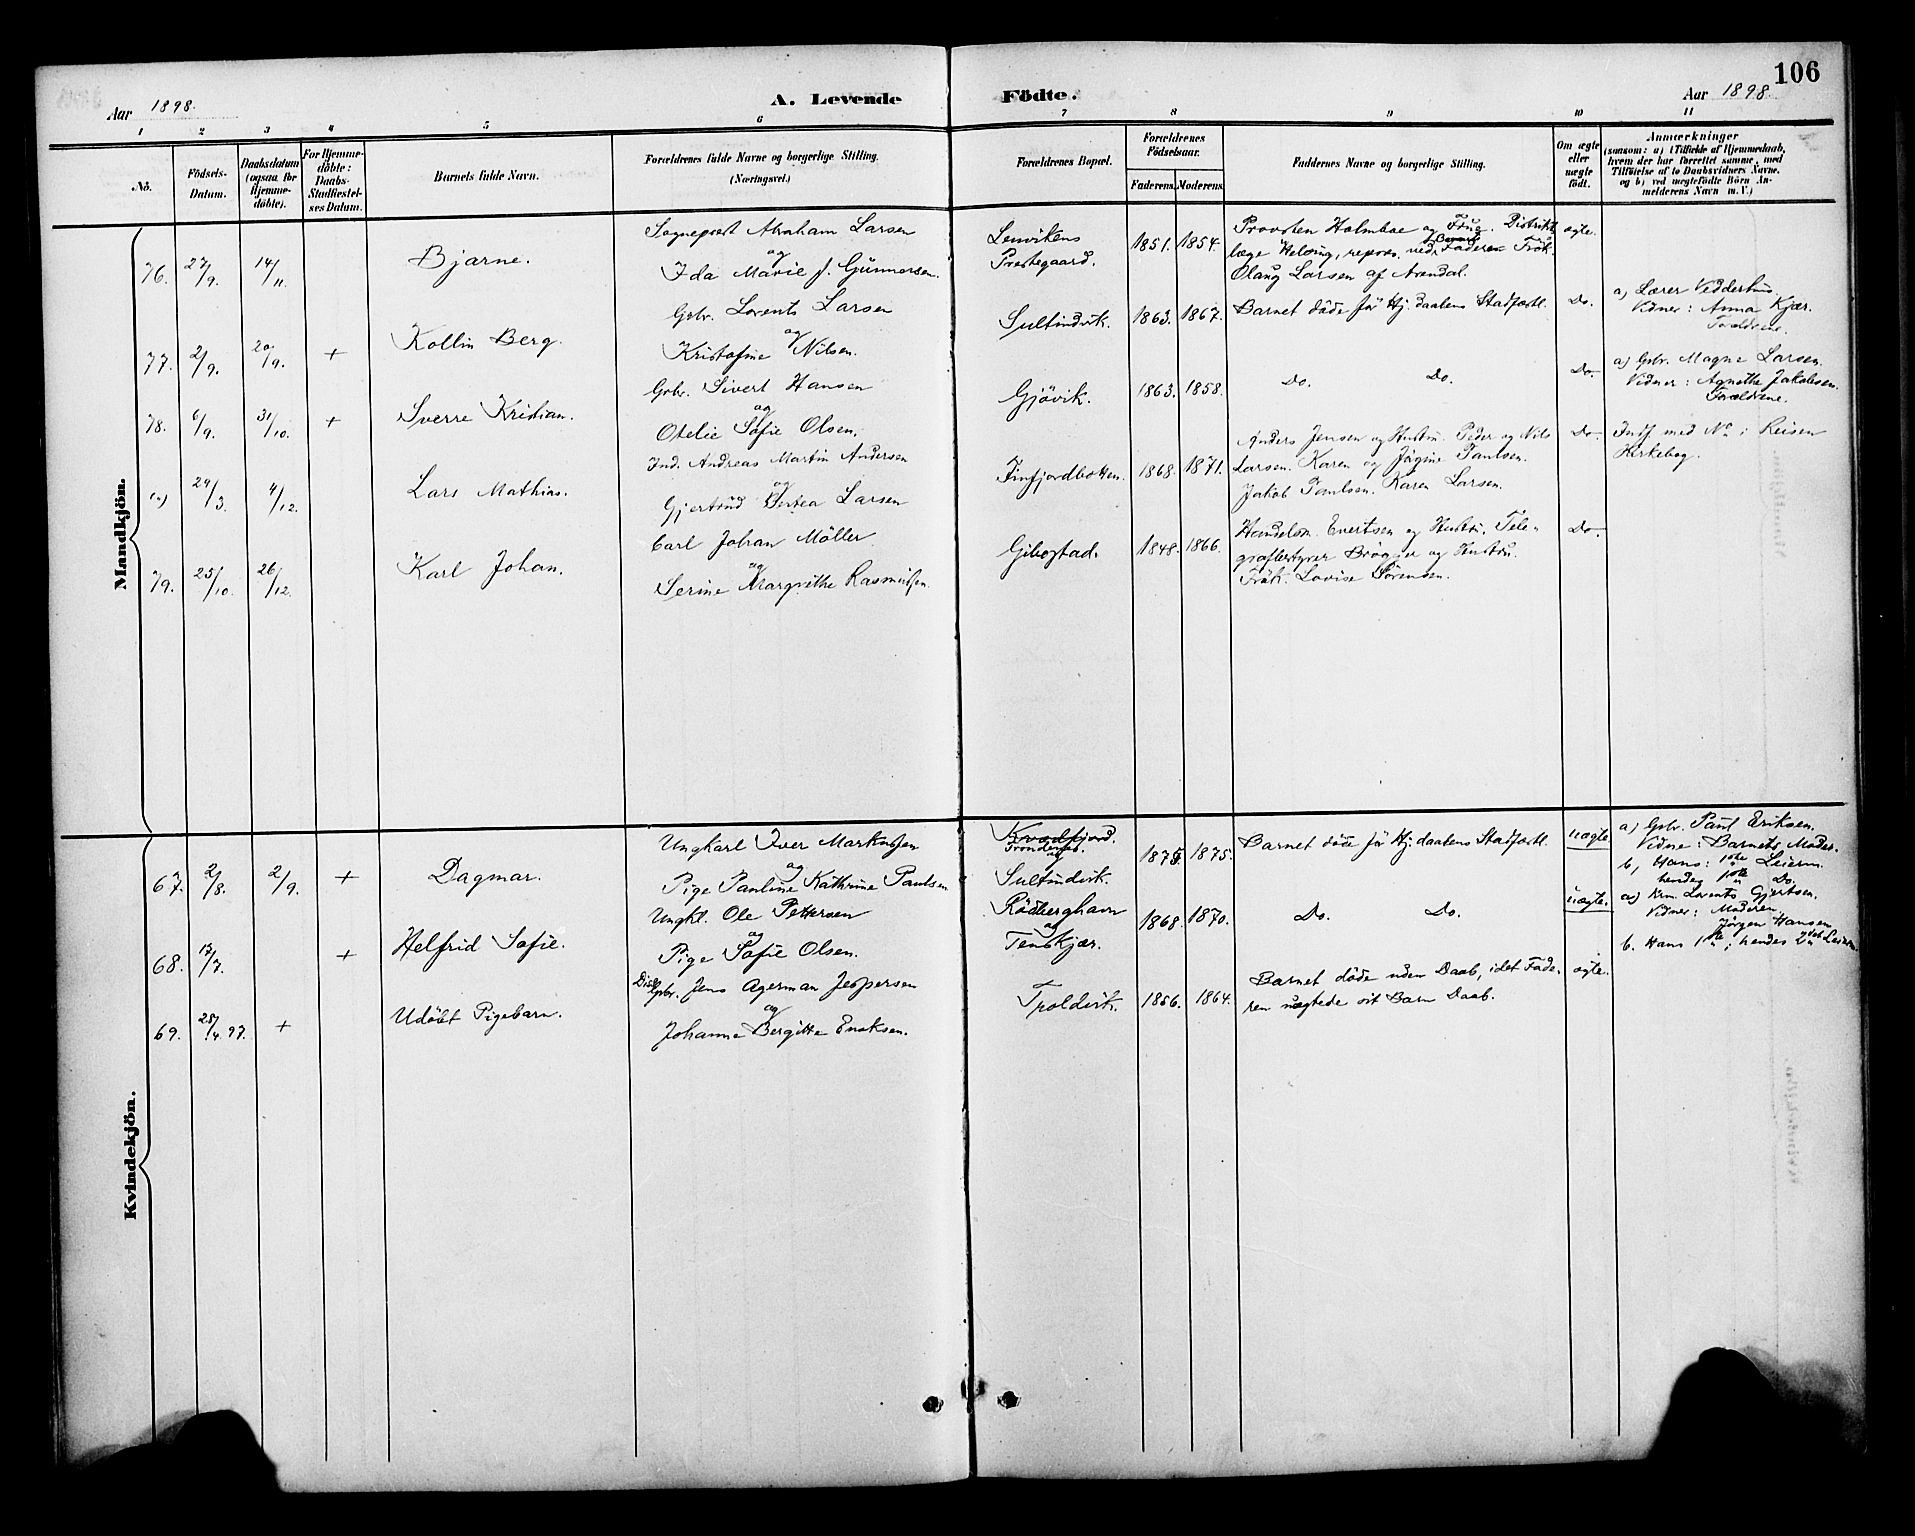 106
Aar 1898.
A. Levende Födte.
Aar 1898
1 2 3 4 5 6 7 8 9 10 11
No.
Födsels-
Datum.
Daabsdatum
(ogsaa for
Hjemme-
döbte).
For Hjemme-
döbte:
Daabs-
Stadfæstel-
ses Datum.
Barnets fulde Navn.
Forældrenes fulde Navne og borgerlige Stilling.
(Næringsvei.)
Forældrenes Bopæl.
Forældrenes
Födselsaar.
Faderens. Moderens.
Faddernes Navne og borgerlige Stilling.
Om ægte
eller
uægte
födt.
Anmærkninger
(saasom: a) i Tilfælde af Hjemmedaab,
hvem der har forrettet samme, med
Tilföielse af to Daabsvidners Navne,
og b) ved uægtefödte Börn An-
melderens Navn m. V.)
Mandkjön.
76. 27/9. 14/11. Bjarne.
Sognepræst Abraham Larsen
og
Ida Marie J. Gunnersen.
Lenvikens
Prestegaard.
1851. 1854.
Provsten Holmboe og Frue. Distrikts
læge Helsing, repræs. ved Faderen Frök.
Olaug Larsen af Arendal.
ægte.
77. 2/9. 20/9. + Kollin Berg.
Gbr. Lorents Larsen
og
Kristofine Nilsen.
Sultindvik. 1863. 1867.
Barnet döde för Hj. daabens Stadfæstl.
Do.
a) Lærer Vedderhus.
Vidner: Anna Kjær.
Forældrene.
78. 6/9. 31/10. + Sverre Kristian.
Gbr. Sivert Hansen
og
Otelie Sofie Olsen.
Gjövik. 1863. 1858.
Do. Do.
Do.
a) Gbr. Magne Larsen.
Vidner: Agnethe Jakobsen.
Forældrene.
24/3. 4/12. Lars Mathias.
Ind. Andreas Martin Andersen
og
Gjertrud Dortea Larsen
Finfjordbotten. 1868. 1871.
Anders Jensen og Hustru. Peder og Nils
Larsen. Karen og Jörgine Paulsen.
Jakob Paulsen. Karen Larsen.
Do.
Indf. med No i Reisen
Kirkebog.
79. 25/10. 26/12. Karl Johan.
Carl Johan Möller
og
Serine Margrethe Rasmussen.
Gibostad. 1848. 1866.
Handelsm. Evertsen og Hustru. Tele-
grafbestyrer Brögger og Hustru.
Frök. Lovise Sörensen.
Do.
Kvindekjön.
67. 2/8. 2/9. + Dagmar.
Ungkarl Iver Markussen
og
Pige Pauline Kathrine Paulsen
Kvædfjord.
Trondenes.
og
Sultindvik.
1875. 1875.
Barnet döde för Hj. daabens Stadfæstl.
uægte
a) Gbr. Paul Eriksen.
Vidne: Barnets Moder.
b, Hans: 1ste Leierm.
hendes 1ste Do.
68. 13/7. + Helfrid Sofie.
Ungkl. Ole Pettersen
og
Pige Sofie Olsen.
Rödberghavn
og
Tenskjær.
1868. 1870.
Do. Do.
uægte.
a) Krm. Lorents Gjertsen.
Vidner: Moderen.
Jörgen Hansen
b. Hans 1ste; hendes 2det Leierm.
69. 28/4 97. + Udöbt Pigebarn.
Diss. Gbr. Jens Agerman Jespersen
og
Johanna Bergitte Enoksen.
Troldvik. 1856. 1864.
Barnet döde uden Daab, idet Fade-
ren nægtede sit Barn Daab.
ægte.